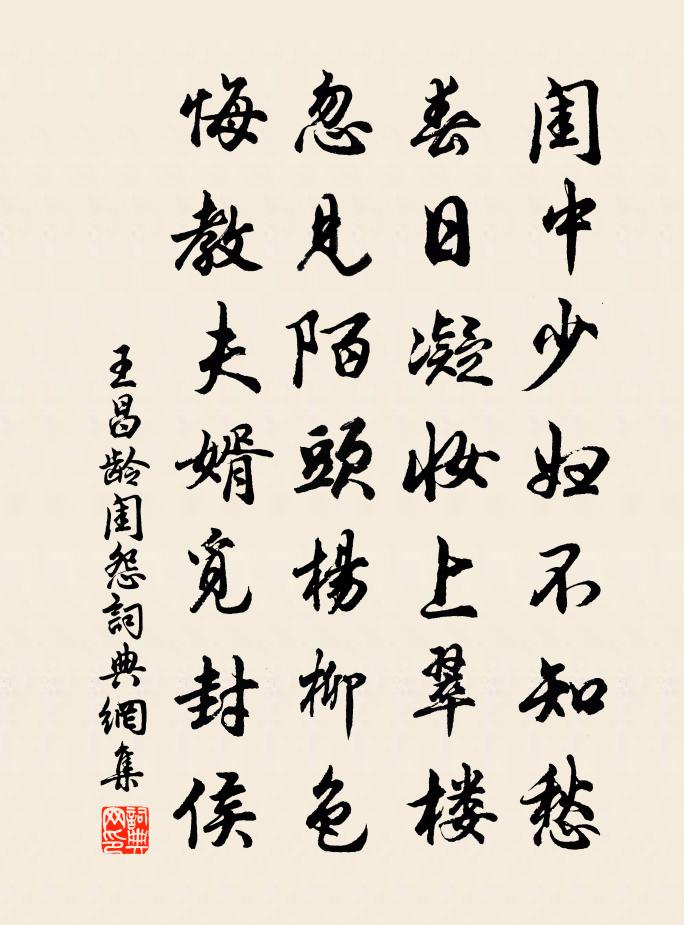 闺中少妇不知愁
春日凝妆上翠楼
忽见陌頭楊柳色
悔教夫婿覓封侯
王昌龄闺怨詞典網集
詞典网印